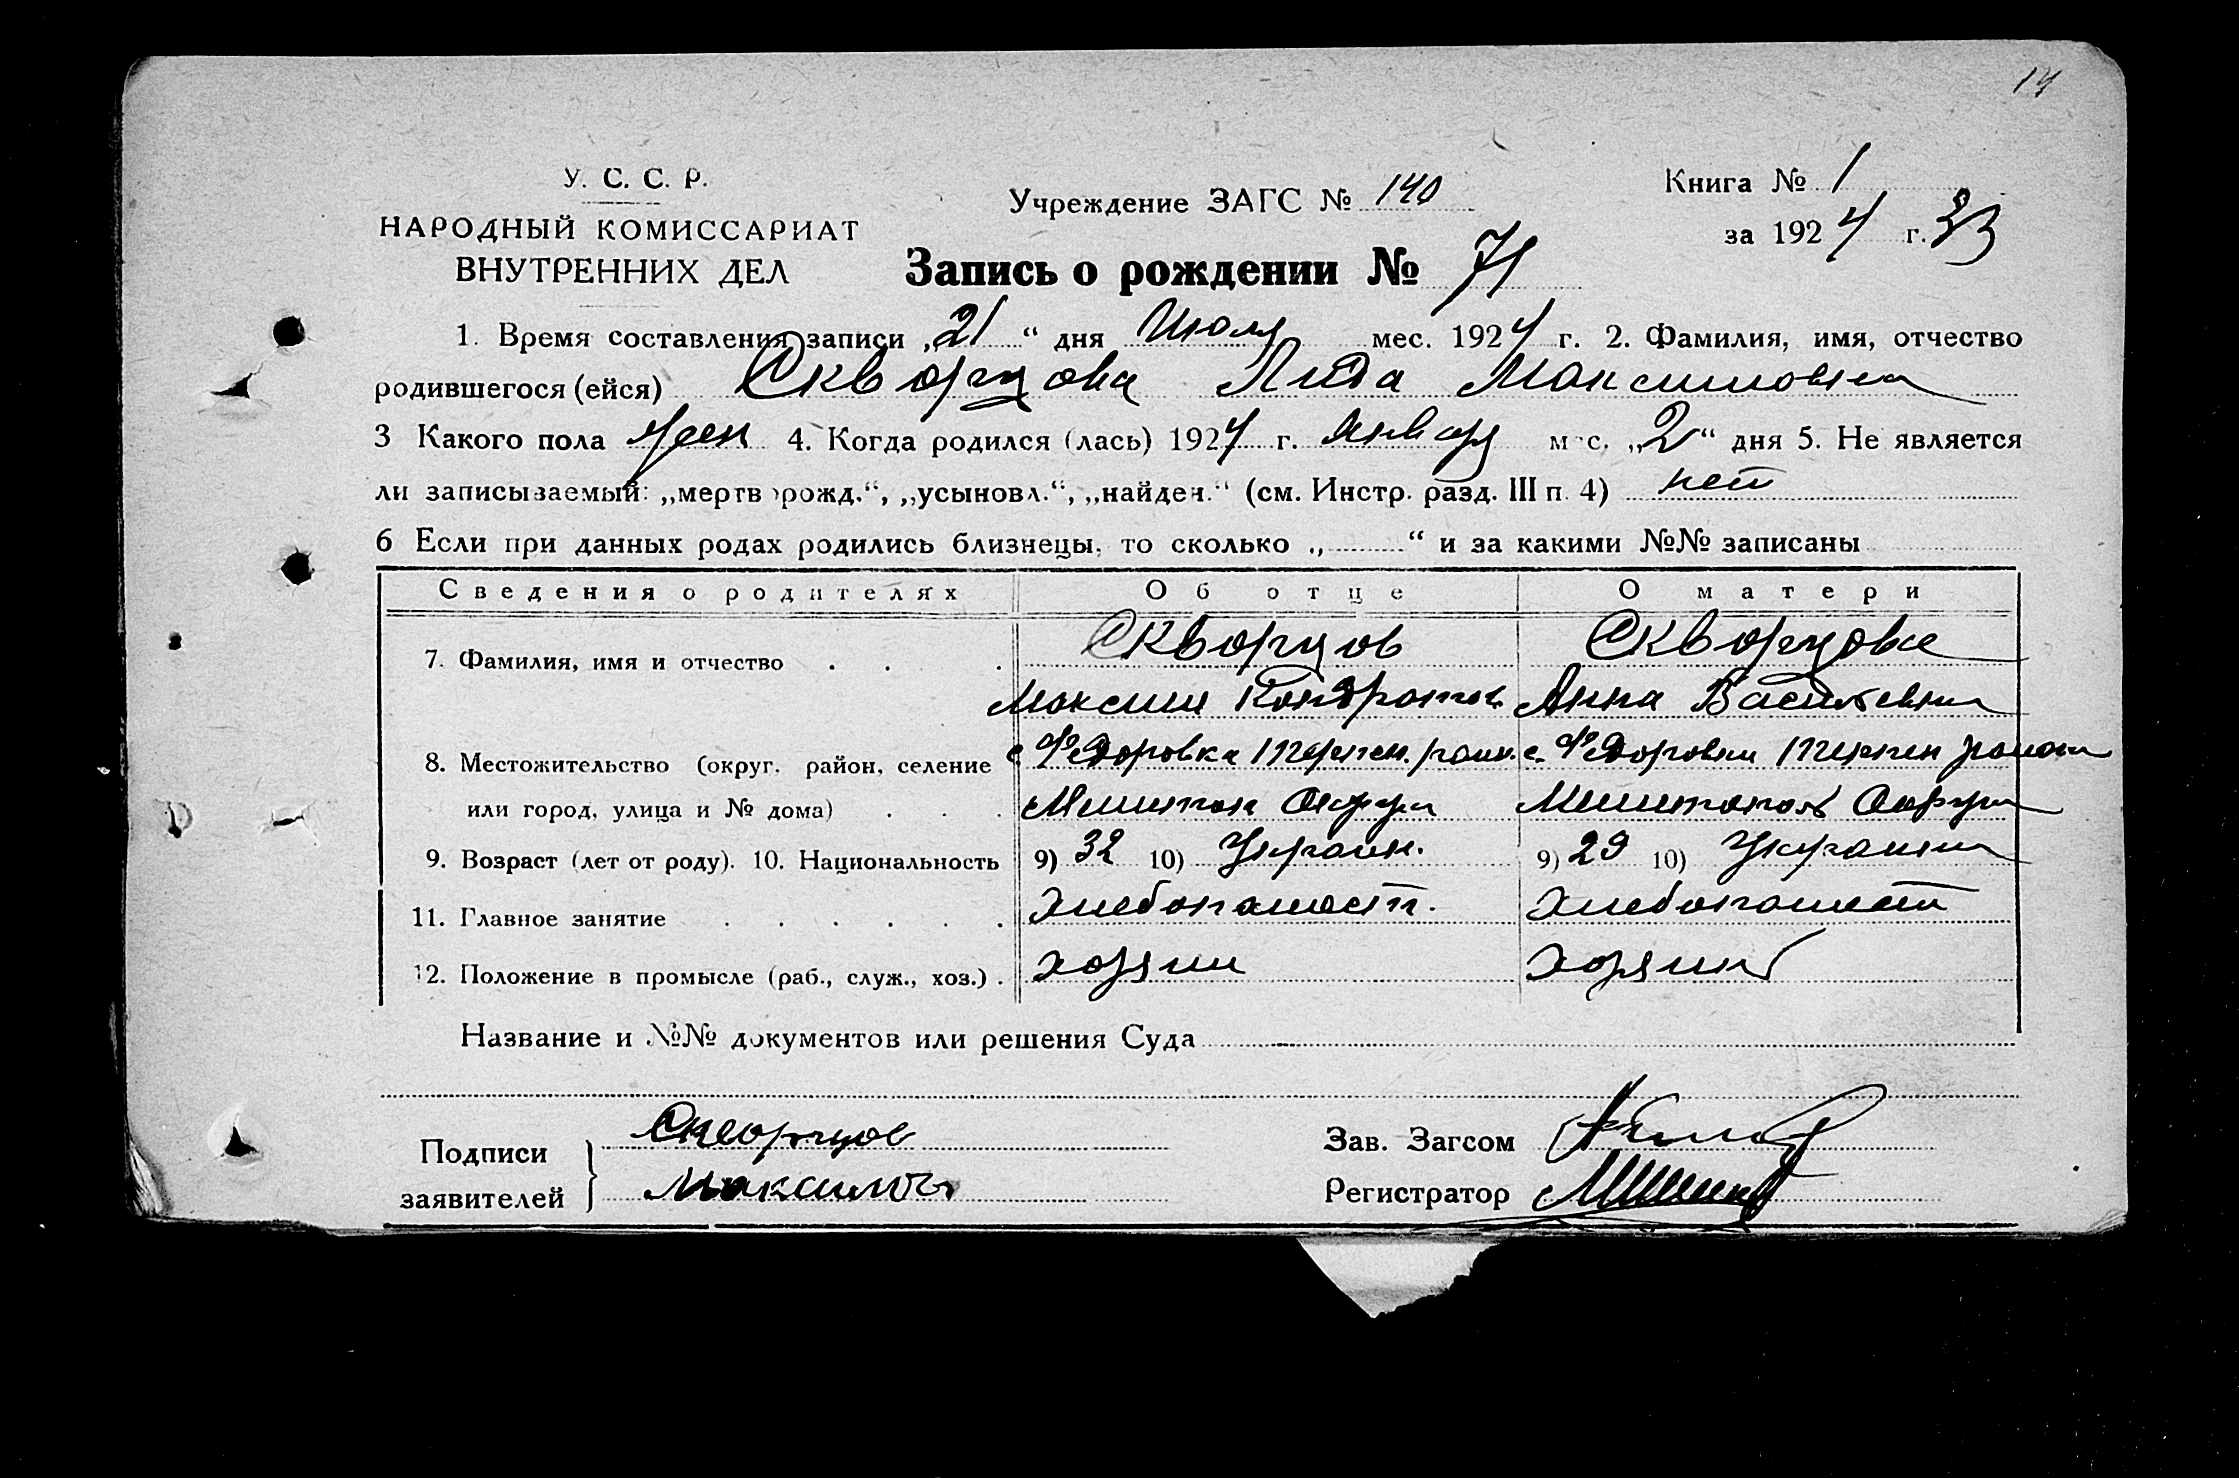 14
У. С. С. Р.
НАРОДНЫЙ КОМИССАРИАТ
ВНУТРЕННИХ ДЕЛ
Учреждение ЗАГС № 140
Книга № 1
за 1924 г. 33
Запись о рождении № 71
1. Время составления записи „21“ дня Июля мес. 1924 г. 2. Фамилия, имя, отчество
родившегося (ейся) Скворцова Лида Максимовна
3 Какого пола жен 4. Когда родился (лась) 1924 г. Января мес. „2“ дня 5. Не является
ли записываемый: „мертворожд.“, „усыновл.“, „найден.“ (см. Инстр. разд. III п. 4) нет
6 Если при данных родах родились близнецы, то сколько „ “ и за какими №№ записаны
Сведения о родителях Об отце О матери
7. Фамилия, имя и отчество Скворцов Скворцова
Максим Кондратов Анна Васильевна
8. Местожительство (округ, район, селение с. Федоровка Терпен. район. с. Федоровки Терпен района
или город, улица и № дома) Мелитоп Округа Мелитополь Округа
9. Возраст (лет от роду). 10. Национальность 9) 32 10) Украин. 9) 29 10) Украинка
11. Главное занятие Хлебопашест. Хлебопашест
12. Положение в промысле (раб., служ., хоз.) хозяин хозяин
Название и №№ документов или решения Суда
Подписи заявителей } Скворцов
Максимов
Зав. Загсом
Регистратор